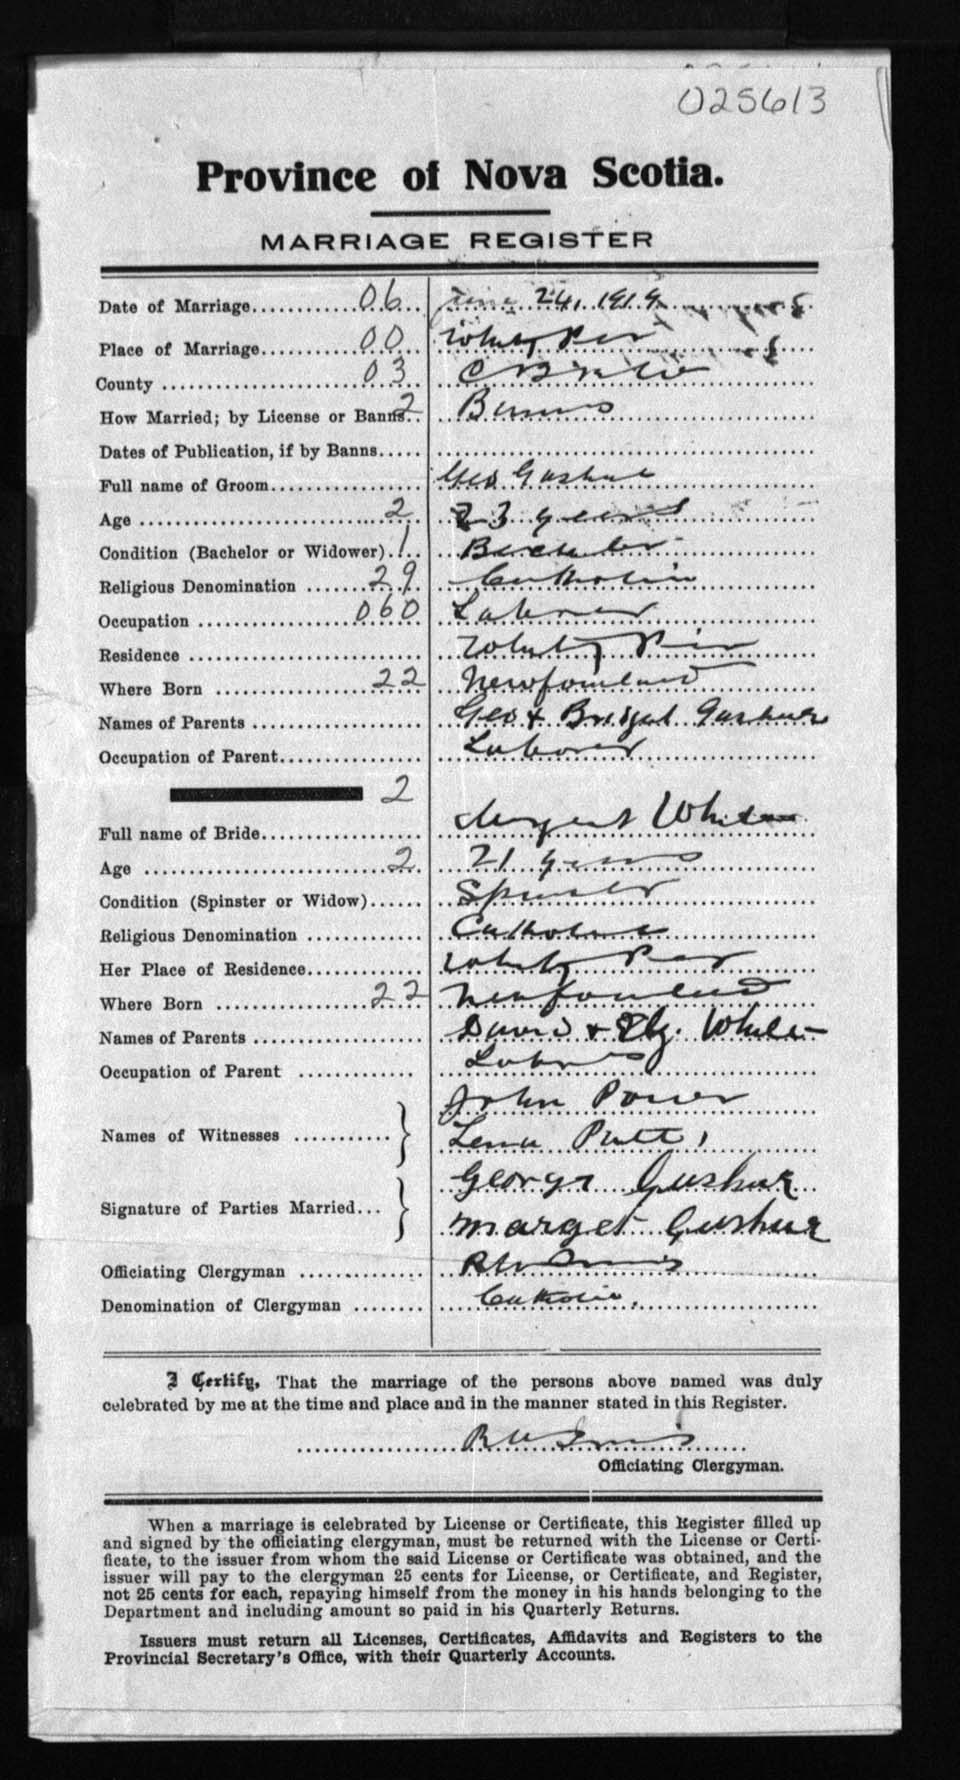 025613
Province of Nova Scotia.
MARRIAGE REGISTER
Date of Marriage 06 June 24, 191
Place of Marriage 00 Whitney Pier
County 03 C Breton
How Married; by License or Banns 2 Banns
Dates of Publication, if by Banns
Full name of Groom Geo Gushue
Age 2 23 years
Condition (Bachelor or Widower) 1 Bachelor
Religious Denomination 29 Catholic
Occupation 060 Laborer
Residence Whitney Pier
Where Born 22 Newfoundland
Names of Parents Geo & Bridget Gushue
Occupation of Parent Laborer
2
Full name of Bride Margaret White
Age 2 21 years
Condition (Spinster or Widow) Spinster
Religious Denomination Catholic
Her Place of Residence Whitney Pier
Where Born 22 Newfoundland
Names of Parents David & Eliz. White
Occupation of Parent Laborer
John Power
Names of Witnesses
Lena
George Gushue
Signature of Parties Married
Marget Gushue
Officiating Clergyman
Denomination of Clergyman Catholic.
I Certify, That the marriage of the persons above named was duly
celebrated by me at the time and place and in the manner stated in this Register.
Officiating Clergyman.
When a marriage is celebrated by License or Certificate, this Register filled up
and signed by the officiating clergyman, must be returned with the License or Certi-
ficate, to the issuer from whom the said License or Certificate was obtained, and the
issuer will pay to the clergyman 25 cents for License, or Certificate, and Register,
not 25 cents for each, repaying himself from the money in his hands belonging to the
Department and including amount so paid in his Quarterly Returns.
Issuers must return all Licenses, Certificates, Affidavits and Registers to the
Provincial Secretary's Office, with their Quarterly Accounts.